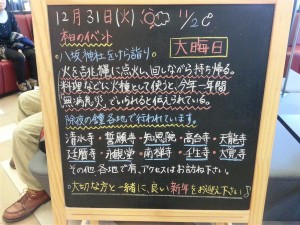 12月31日(火) 11/2℃
本日のイベント 大晦日
八坂神社をけら詣り
火を吉兆縄に点火し、回しながら持ち帰る。
料理などに火種として使うと、今年一年間
無病息災でいられると伝えられている。
除夜の鐘各地で行われています。
清水寺・誓願寺・知恩院・高台寺・天龍寺
延暦寺・永観堂・南禅寺・壬生寺・大覚寺
その他各地で有、アクセスはお訪ね下さい。
大切な方と一緒に、良い新年をお迎え下さい♪